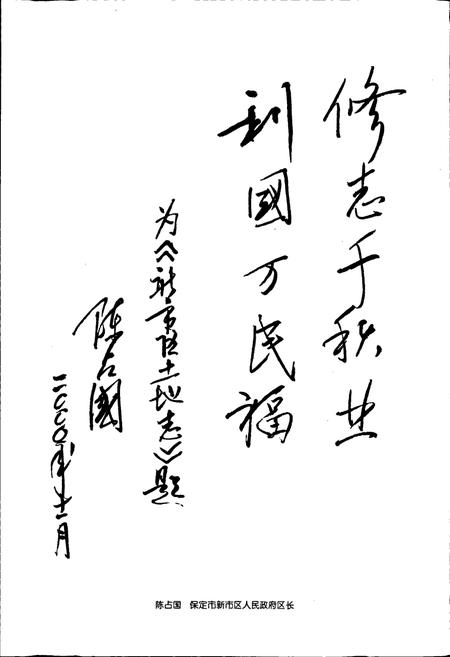 修志千秋业
利國万民福
为《新市区土地志》题
陈占國
二〇〇〇年十一月
陈占国 保定市新市区人民政府区长